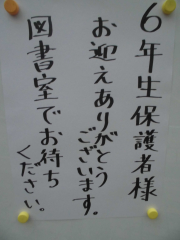 6年生保護者様
お迎えありがとう
ございます。
図書室でお待ち
ください。